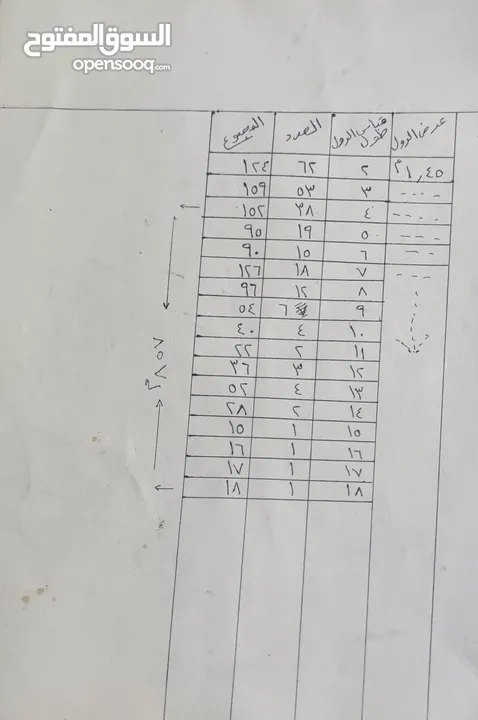 السوق المفتوح
opensooq.com
عرض الرول قياس الرول طول العدد المجموع
١,٤٥م ٢ ٦٢ ١٢٤
٣ ٥٣ ١٥٩
٤ ٣٨ ١٥٢
٥ ١٩ ٩٥
٦ ١٥ ٩٠
٧ ١٨ ١٢٦
٨ ١٢ ٩٦
٩ ٦ ٥٤
١٠ ٤ ٤٠
١١ ٢ ٢٢
١٢ ٣ ٣٦
١٣ ٤ ٥٢
١٤ ٢ ٢٨
١٥ ١ ١٥
١٦ ١ ١٦
١٧ ١ ١٧
١٨ ١ ١٨
٨٥٧م